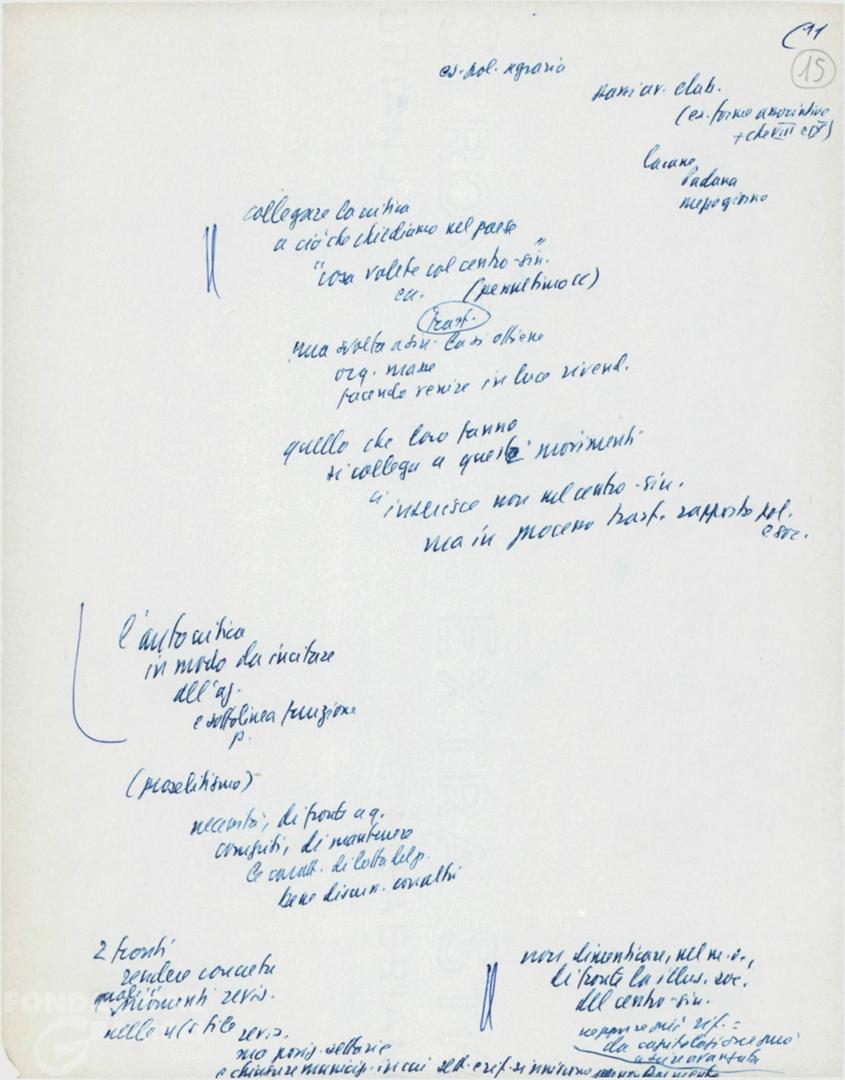 15
es. pol. agraria
elab.
(es. forme associative
+ che VIII e IX)
Padana
mezzogiorno
collegare la critica
a ciò che chiediamo nel paese
"cosa volete col centro-sin."
(penultimo CC)
trasf.
una svolta a sin. la si ottiene
org. masse
facendo venire in luce rivend.
quello che loro fanno
si collega a questi movimenti
inserisce non nel centro-sin.
ma in processo trasf. rapporto pol.
e soc.
l'autocritica
in modo da incitare
all'az.
e sottolinea funzione
p.
(proselitismo)
necessità, di fronte a q.
compiti, di mantenere
le caratt. di lotta del p.
bene discuss. con altri
2 fronti
rendere concreta
quali momenti revis.
nelle ns. file
revis.
ma posiz. settarie
e chiusure municip. in cui sett. e rif.
non dimenticare, nel m.o.,
di fronte la illus. soc.
del centro-sin.
neppure più rif. =
da capitolazione può
FOND